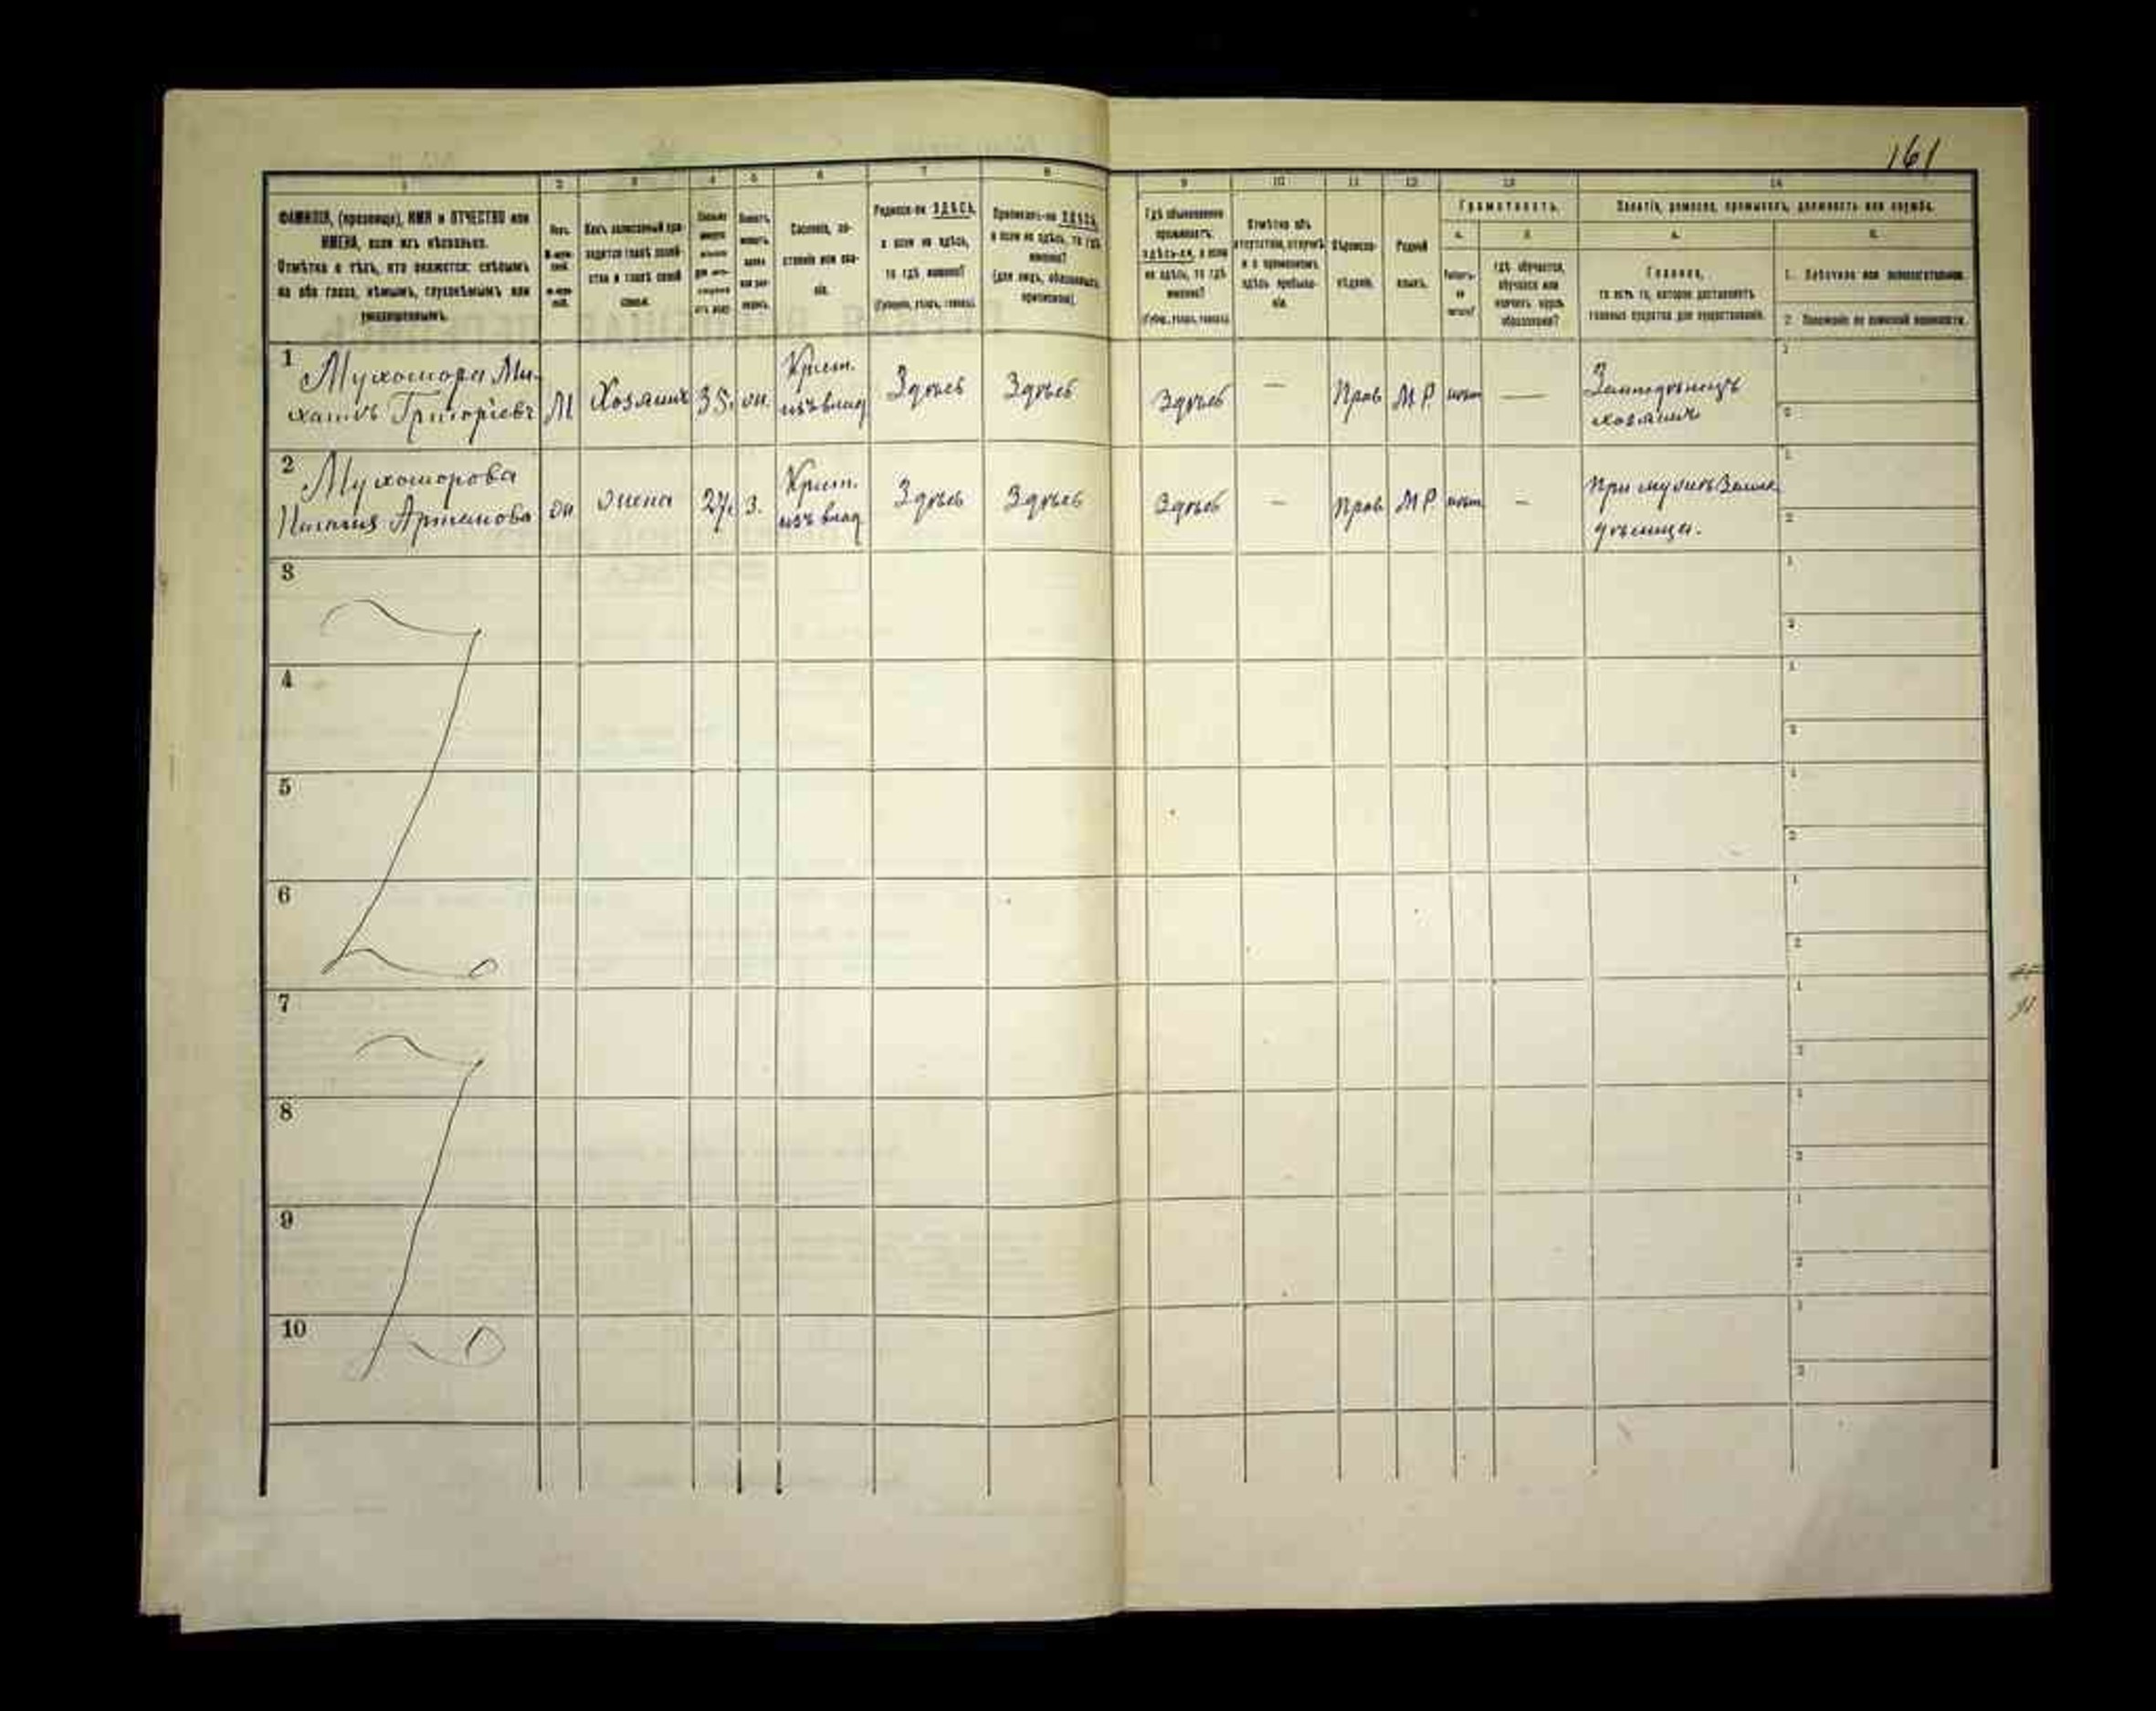 161
1 2 3 4 5 6 7 8 9 10 11 12 13 14
ФАМИЛІЯ, (прозвище), ИМЯ и ОТЧЕСТВО или
ИМЕНА, если ихъ нѣсколько.
Отмѣтка о тѣхъ, кто окажется: слѣпымъ
на оба глаза, нѣмымъ, глухонѣмымъ или
умалишеннымъ.
Полъ.
Какъ записанный при-
ходится главѣ хозяй-
ства и главѣ своей
семьи.
Сословіе, со-
стояніе или зва-
ніе.
Родился-ли ЗДѢСЬ,
а если не здѣсь,
то гдѣ именно?
(Губернія, уѣздъ, городъ).
Приписанъ-ли ЗДѢСЬ,
а если не здѣсь, то гдѣ
именно?
(для лицъ, обязанныхъ
припискою).
Гдѣ обыкновенно
проживаетъ:
здѣсь-ли, а если
не здѣсь, то гдѣ
именно?
(Губер., уѣздъ, городъ).
Отмѣтка объ
отсутствіи, отлучкѣ
и о временномъ
здѣсь пребыва-
ніи.
Вѣроиспо-
вѣданіе.
Родной
языкъ.
Грамотность.
а. б.
Умѣетъ-
ли
читать?
гдѣ обучается,
обучался или
кончилъ курсъ
образованія?
Занятіе, ремесло, промыселъ, должность или служба.
а. б.
Главное,
то есть то, которое доставляетъ
главныя средства для существованія.
1. Побочное или вспомогательное.
2. Положеніе по воинской повинности.
1 Мухомора Ми-
хаилъ Григорьевъ М Хозяинъ 35. Крест. изъ влад Здѣсь Здѣсь Здѣсь — Прав М Р. — Землѣдѣлецъ хозяинъ
1
2
2 Мухоморова
Артемова жена 27. З. Крест. изъ влад Здѣсь Здѣсь Здѣсь — Прав М Р — При мужѣ
1
2
3
1
2
4
1
2
5
1
2
6
1
2
7
1
2
8
1
2
9
1
2
10
1
2